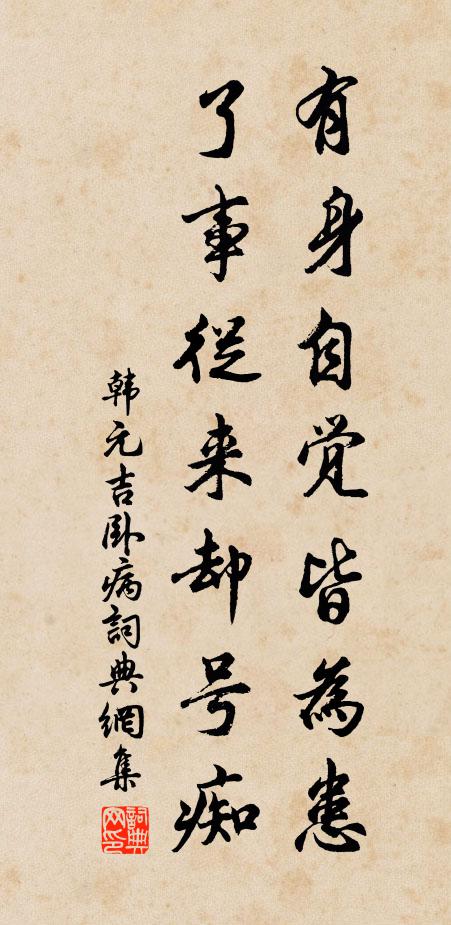 有身自觉皆為患
了事從来却号痴
韩元吉卧病詞典網集
詞典网印